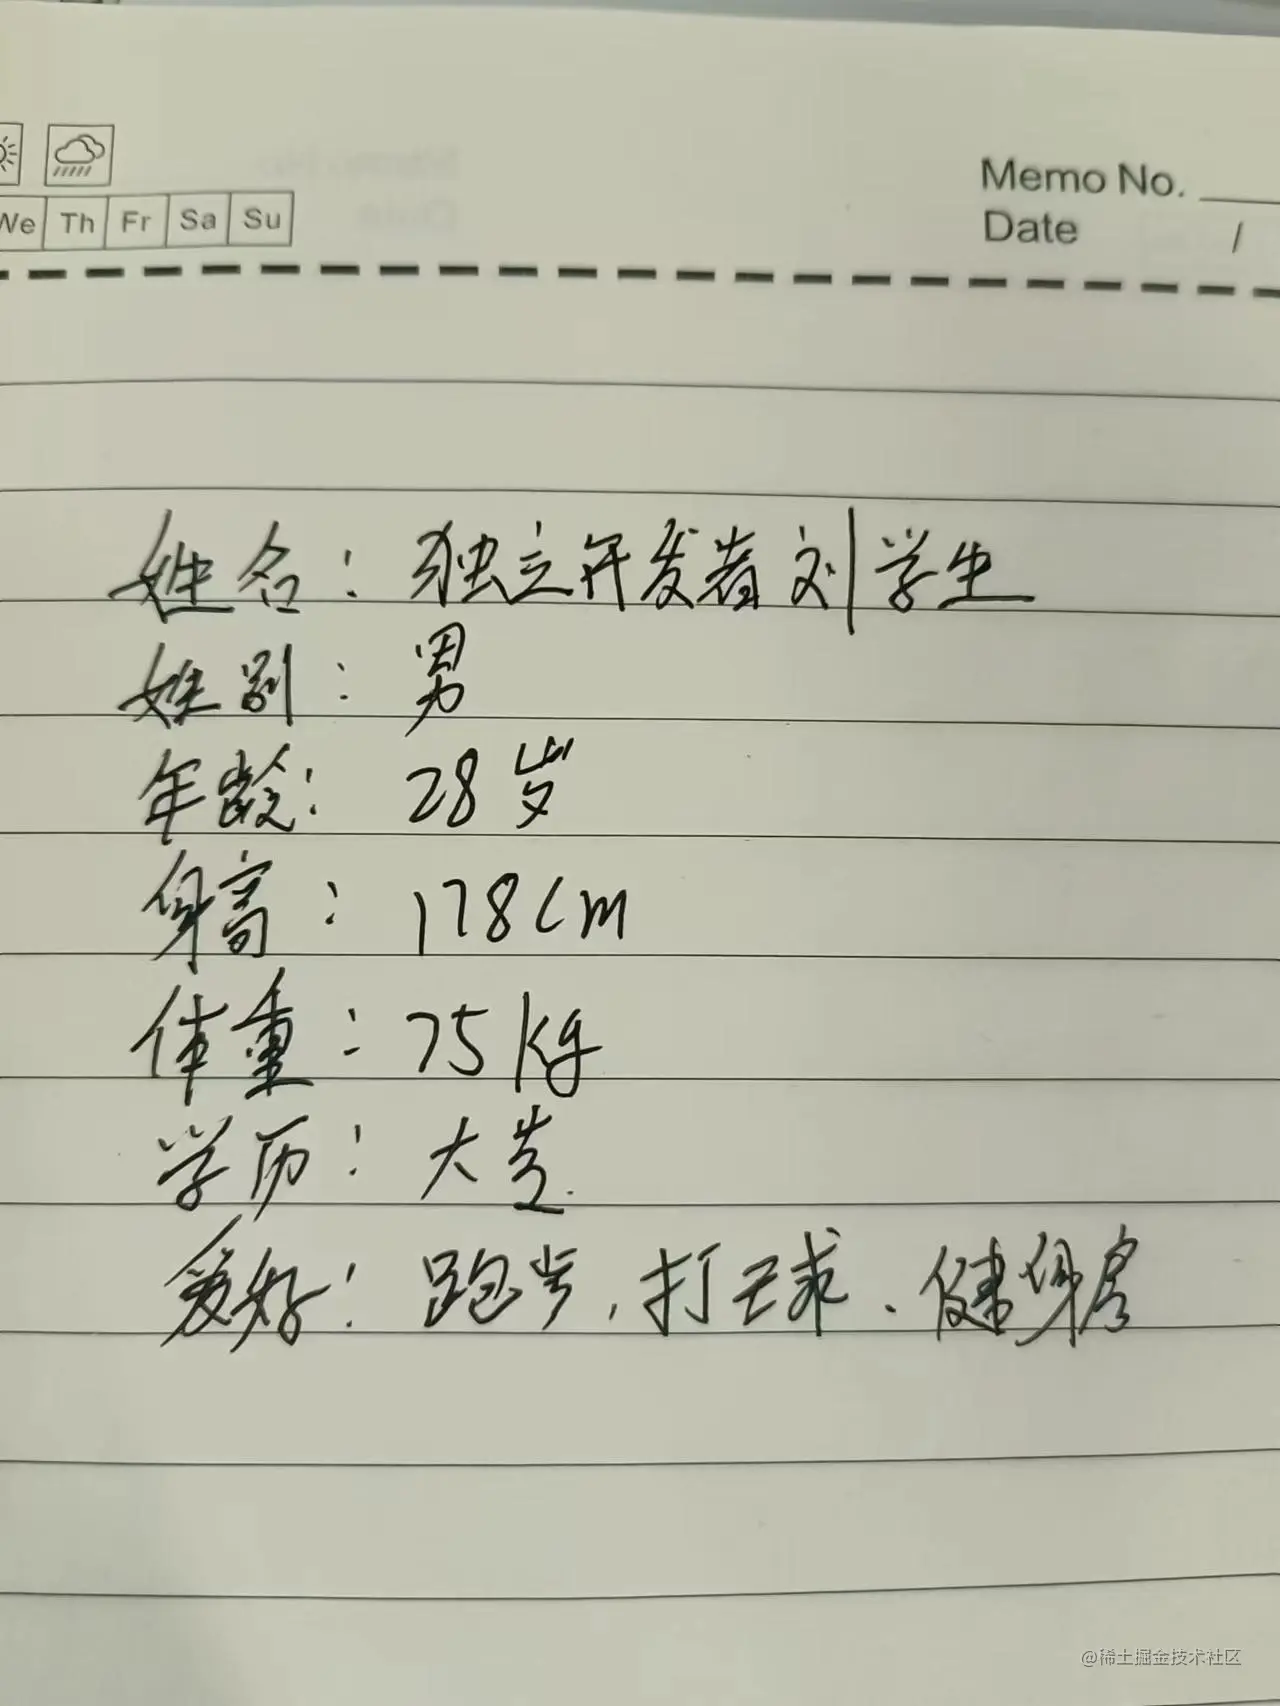 Memo No.
We Th Fr Sa Su
Date /
姓名：独立开发者刘学生
姓别：男
年龄：28岁
身高：178cm
体重：75kg
学历：大专.
爱好：跑步，打球、健身房
@稀土掘金技术社区